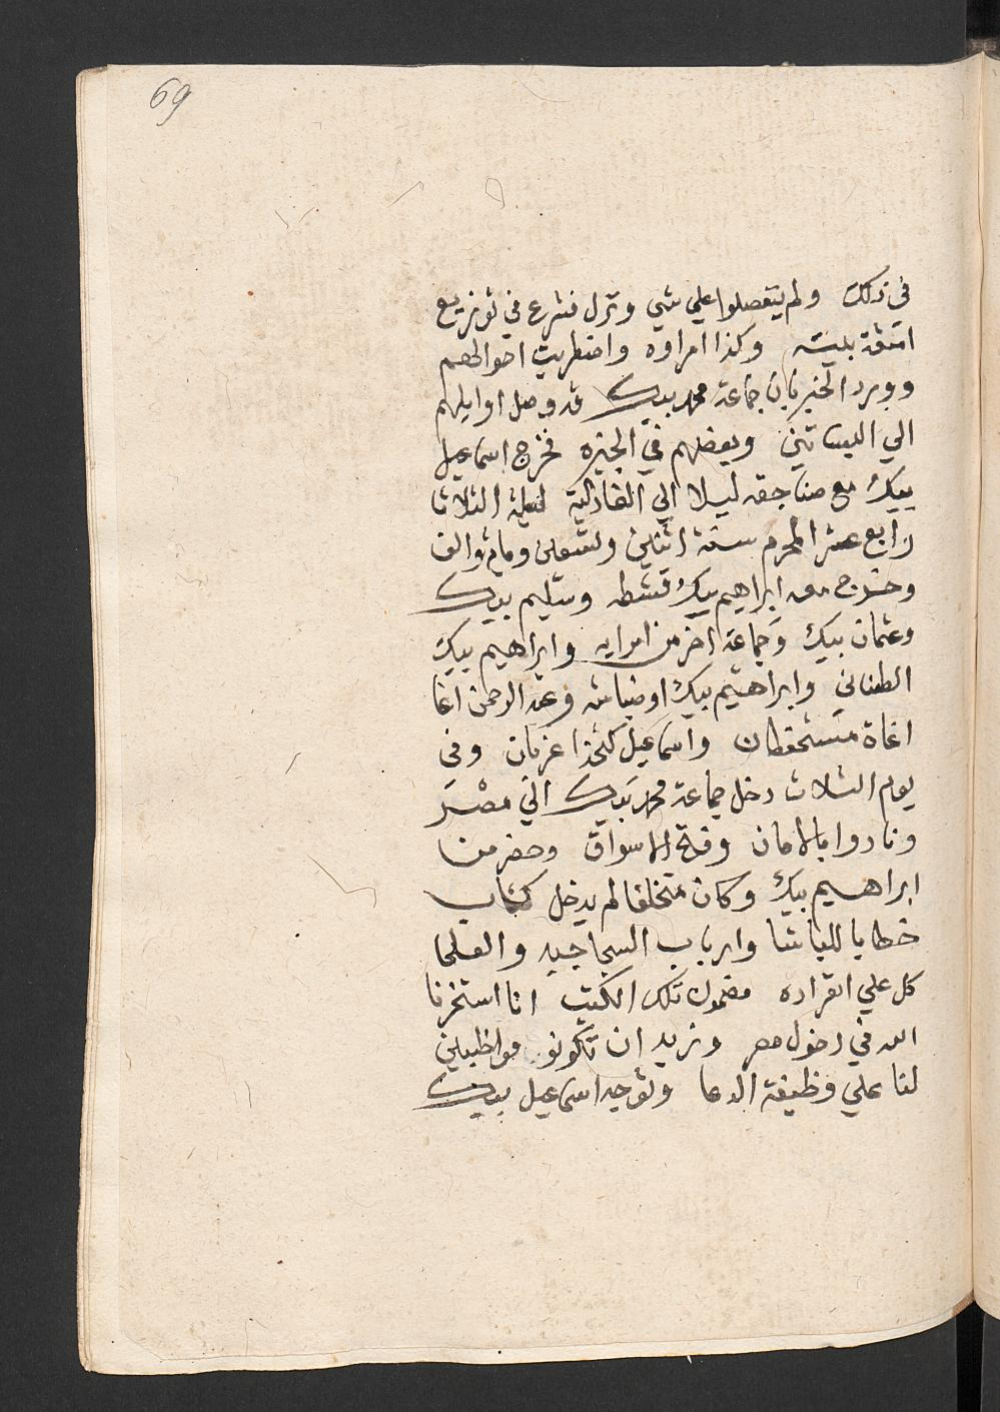 69
في ذلك ولم يتفصلوا علي شي ونزل فشرع في توزيع
امتعة بليته وكذا امراوه واضطربت احوالهم
وورد الخبر بان جماعة محمد بيك قد وصل اوايلهم
الي البساتين وبعضهم في الجيزه فخرج اسماعيل
بيك مع صناجقه ليلا الي العادلية ليلة الثلاثا
رابع عشر المحرم سنة اثنين وتسعين وماية والف
وخرج معه ابراهيم بيك قشطه وسليم بيك
وعثمان بيك وجماعة اخر من امرايه وابراهيم بيك
الطناني وابراهيم بيك اوضباشه وعبد الرحمن اغا
اغاة مستحفظان واسماعيل كتخدا عزبان وفي
يوم الثلاث دخل جماعة محمد بيك الي مصر
ونادوا بالامان وفتح الاسواق وحضر من
ابراهيم بيك وكان متخلفا لم يدخل كتاب
خطابا للباشا وارباب السجاجيد والعلما
كل علي انفراده مضمون تلك الكتب انا استخرنا
الله في دخول مصر ونريد ان تكونو مواظبين
لنا علي وظيفة الدعا وتوجه اسماعيل بيك